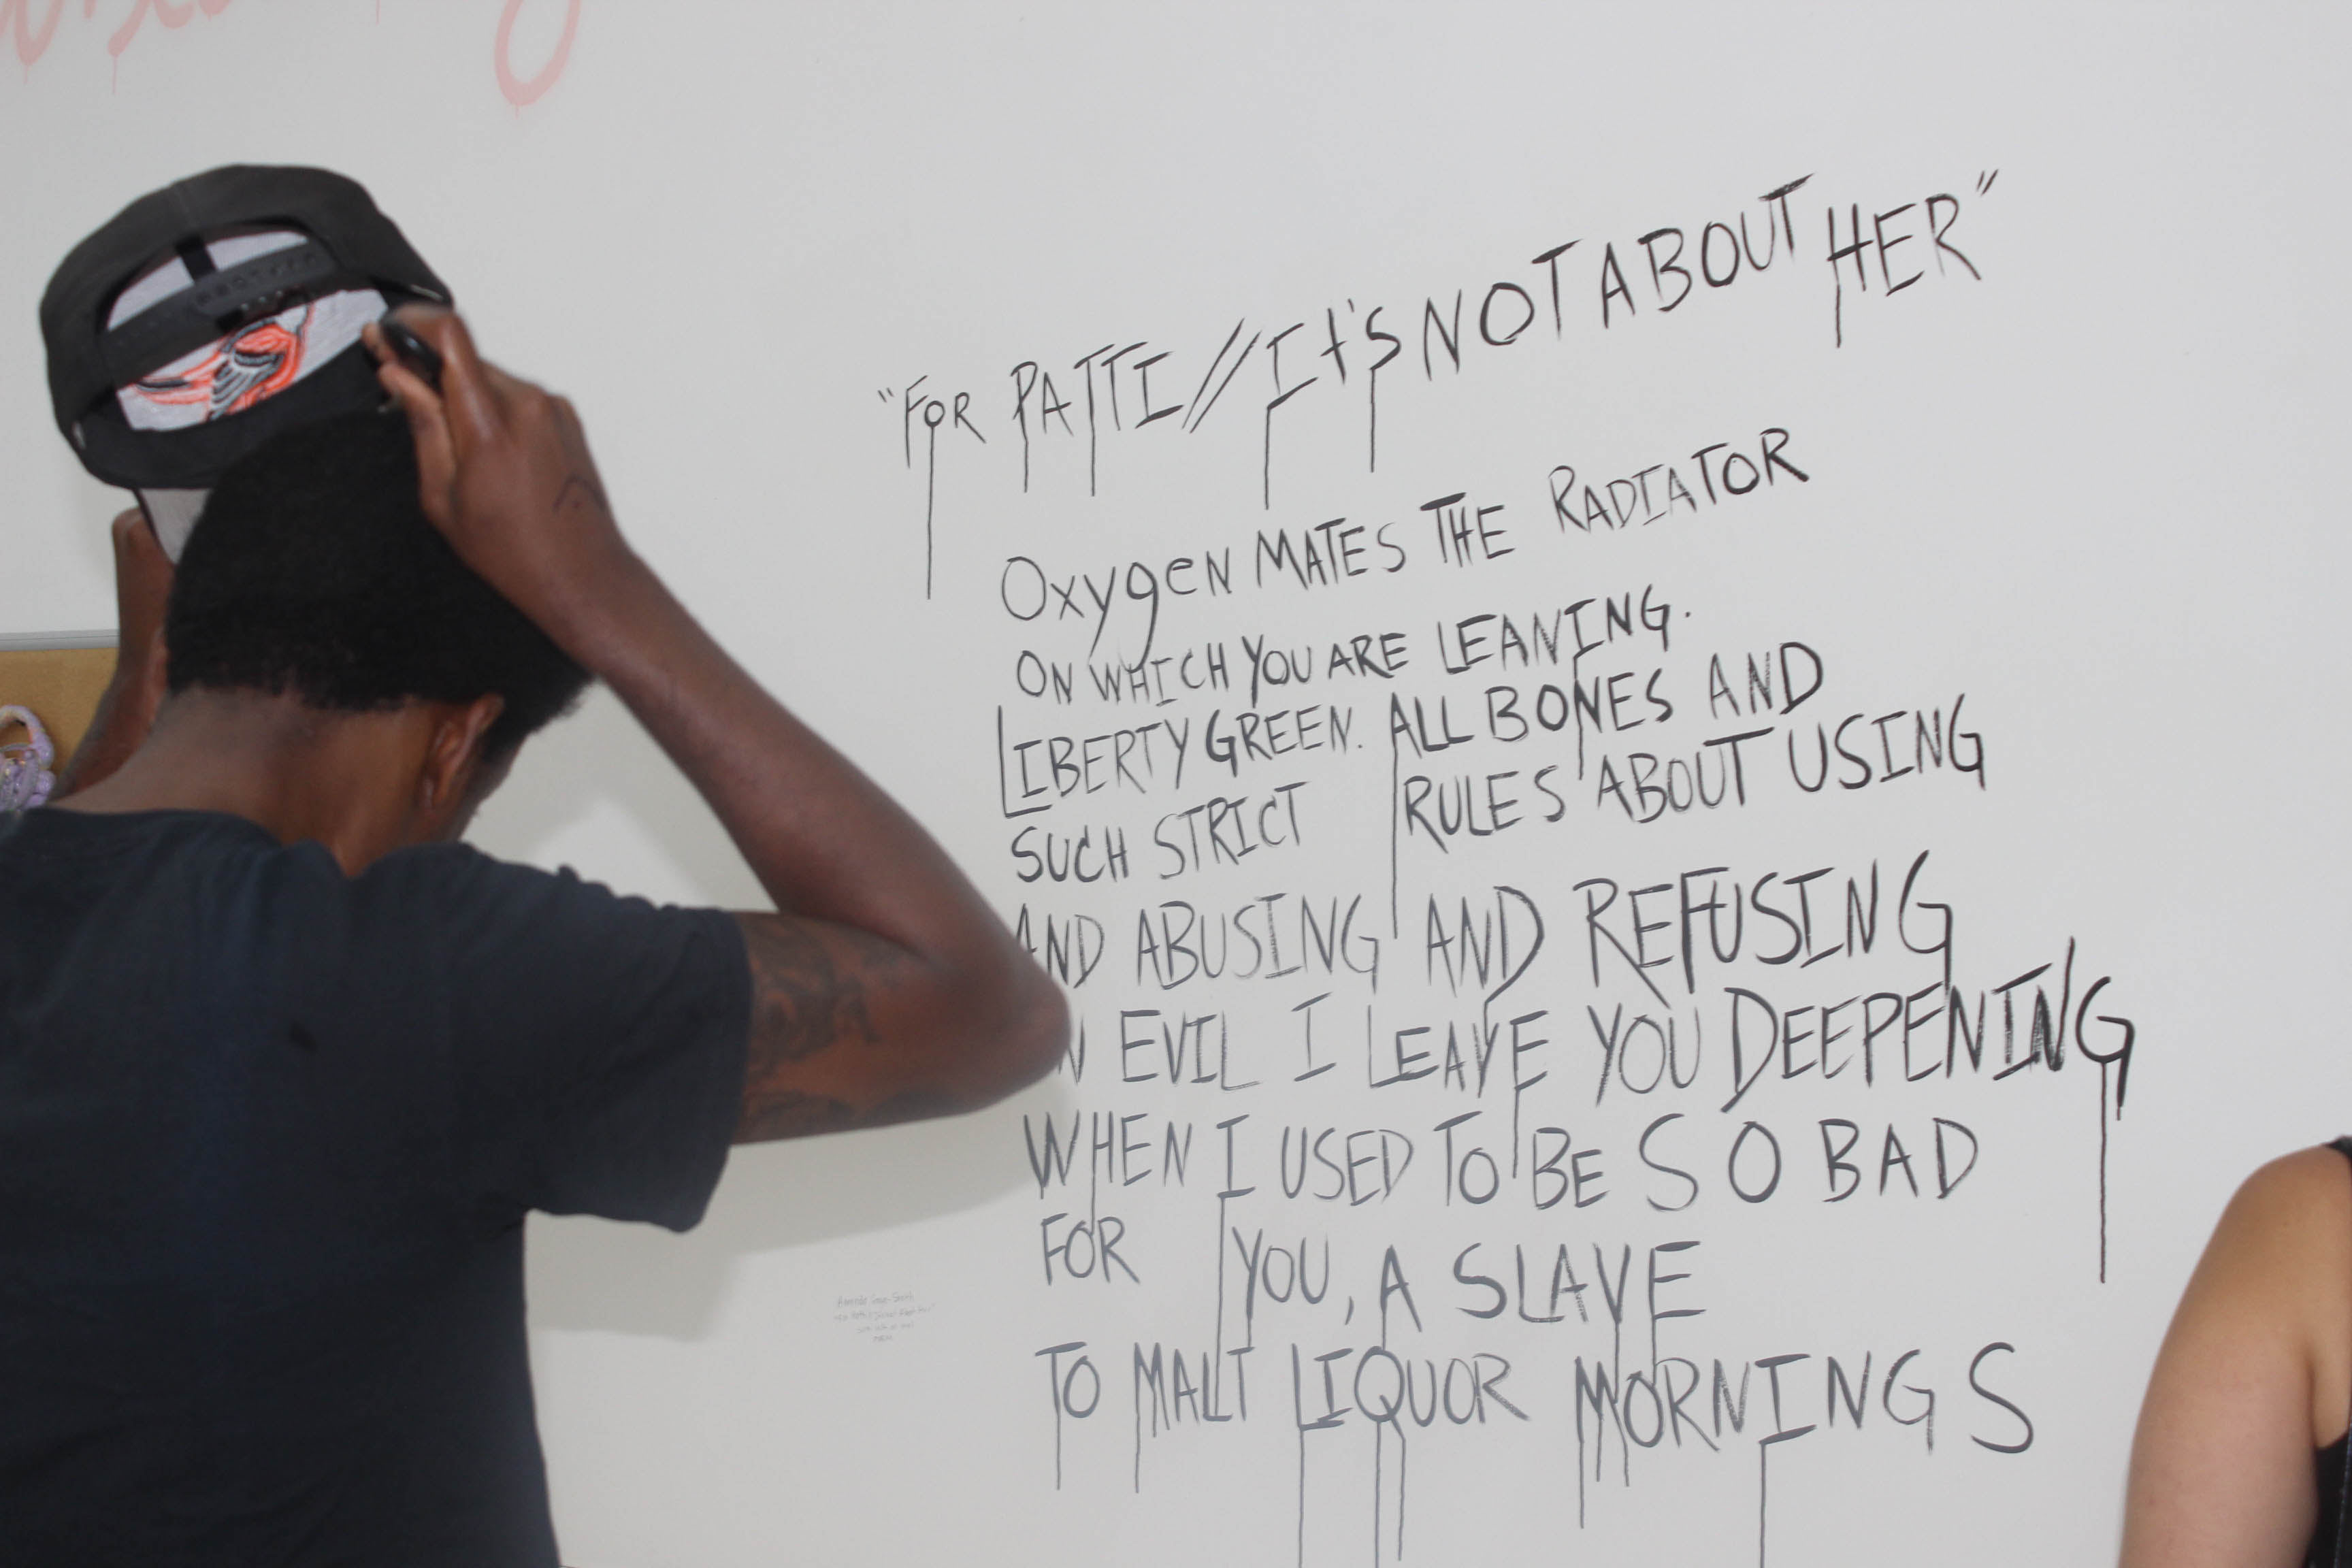 "FOR PATTI // It's NOT ABOUT HER"
OxygeN MATES THE RADIATOR
ON WHICH YOU ARE LEANING.
LIBERTY GREEN. ALL BONES AND
SUCH STRICT RULES ABOUT USING
AND ABUSING AND REFUSING
EVIL I LEAVE YOU DEEPENING
WHEN I USED TO BE SO BAD
FOR YOU, A SLAVE
TO MALT LIQUOR MORNINGS